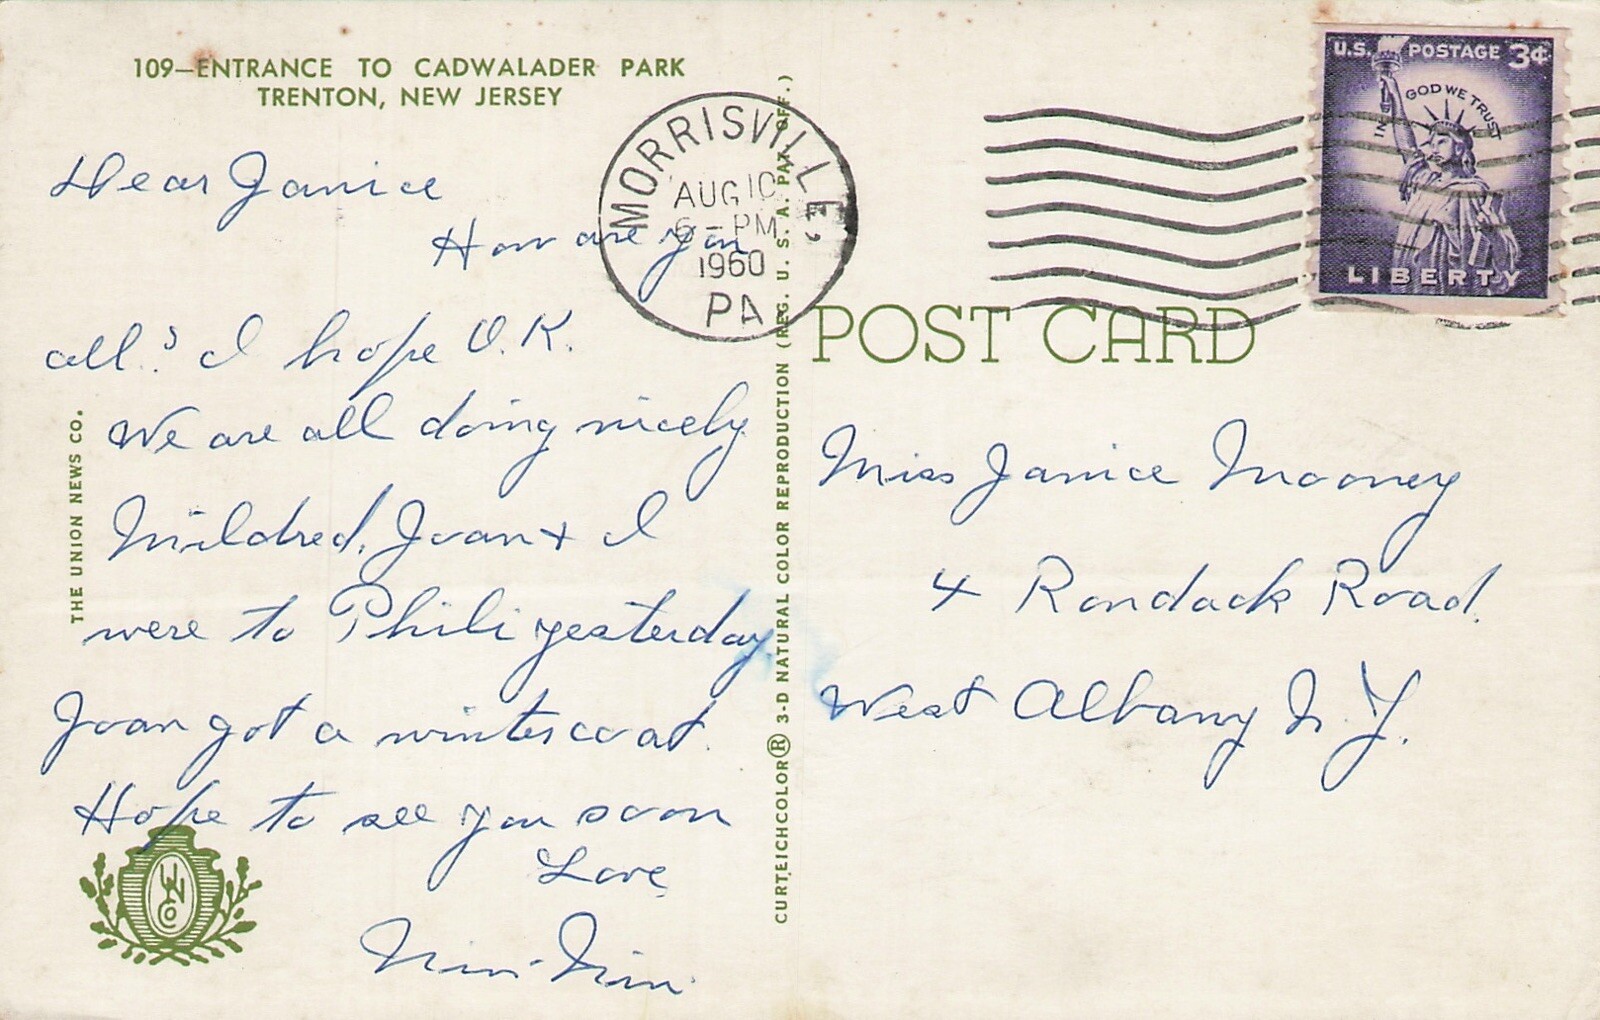 109—ENTRANCE TO CADWALADER PARK
TRENTON, NEW JERSEY
Dear Janice
How are you
all? I hope O.K.
We are all doing nicely
Mildred, Joan + I
were to Phili yesterday
Joan got a winter coat.
Hope to see you soon
Love,
THE UNION NEWS CO.
UNCO
CURTEICHCOLOR® 3-D NATURAL COLOR REPRODUCTION (REG. U. S. A. PAT. OFF.)
MORRISVILLE,
AUG 10
6-PM
1960
PA
U.S. POSTAGE 3¢
IN GOD WE TRUST
LIBERTY
POST CARD
Miss Janice Mooney
4 Rondack Road.
West Albany N.Y.